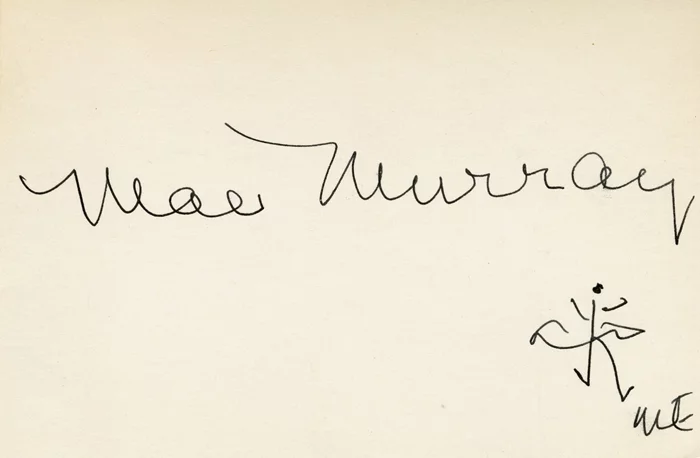 Mae Murray
ME